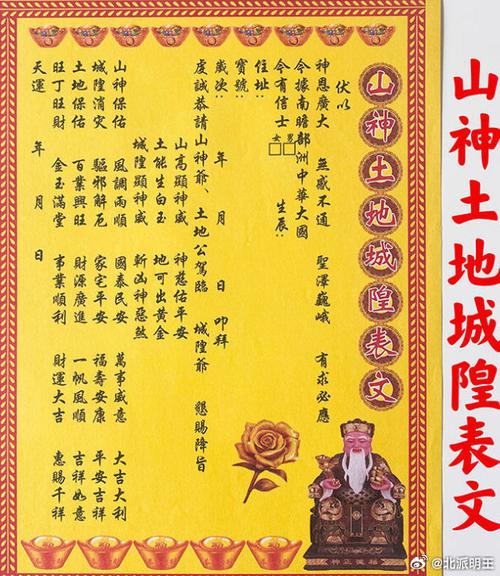 山神土地城隍表文
山神土地城隍表文
伏以
神恩廣大　無感不通　聖澤巍峨　有求必應
今據南瞻部洲中華大國
今有信士：男□女□　生辰：
住址：
寶號：
歲次：　年　月　日　叩拜
虔誠恭請山神爺、土地公駕臨　城隍爺　懇賜降旨
山高顯神威　神慈佑平安
土能生白玉　地可出黃金
城隍顯神威　斬凶神惡煞
山神保佑　風調雨順　國泰民安　萬事盛意　大吉大利
城隍消災　驅邪解厄　家宅平安　福壽安康　平安吉祥
土地保佑　百業興旺　財源廣進　一帆風順　吉祥如意
旺丁旺財　金玉滿堂　事業順利　財運大吉　惠賜千祥
天運　年　月　日
福德正神
@北派明王